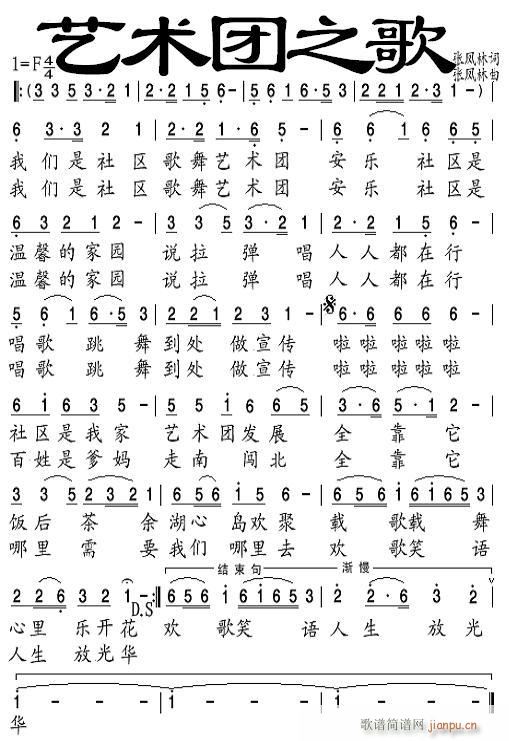 艺术团之歌
1=F 4/4
张凤林词
张凤林曲
‖:(3 3 5 3·2 1 | 2·2 1 5 2 - | 5·6 6 1 6 5 | 2 2 1 2 1 - ) |
6 3·2 2 - | 2·2 1 6 5 - | 6 6 1 6 6 5 |
我们是社区 歌舞艺术团 安乐 社区是
我们是社区 歌舞艺术团 安乐 社区是
6 3 2 1 2 - | 3 3 5 3·2 1 | 2 2 1 5 6 - |
温馨的家园 说拉弹唱 人人都在行
温馨的家园 说拉弹唱 人人都在行
5 6 1 6·5 3 | 2 2 2 1 2 3 - | 6 6 6 6 6 - |
唱歌跳舞到处做宣传 啦啦啦啦啦
唱歌跳舞到处做宣传 啦啦啦啦啦
6 1 6 3 5 - | 5·5 2 6 6 5 | 3·6 5·1 2 - |
社区是我家 艺术团发展 全靠它
百姓是爹妈 走南闯北 全靠它
饭后茶余湖心岛欢聚 载歌载舞
哪里需要我们哪里去 欢歌笑语
结束句 渐慢
D.S
心里 乐开花 欢 歌笑 语人生 放光
人生 放光华
1 - - - | 1 - - - | 1 - - - | 1 - - - ‖
华
歌谱简谱网
jianpu.cn